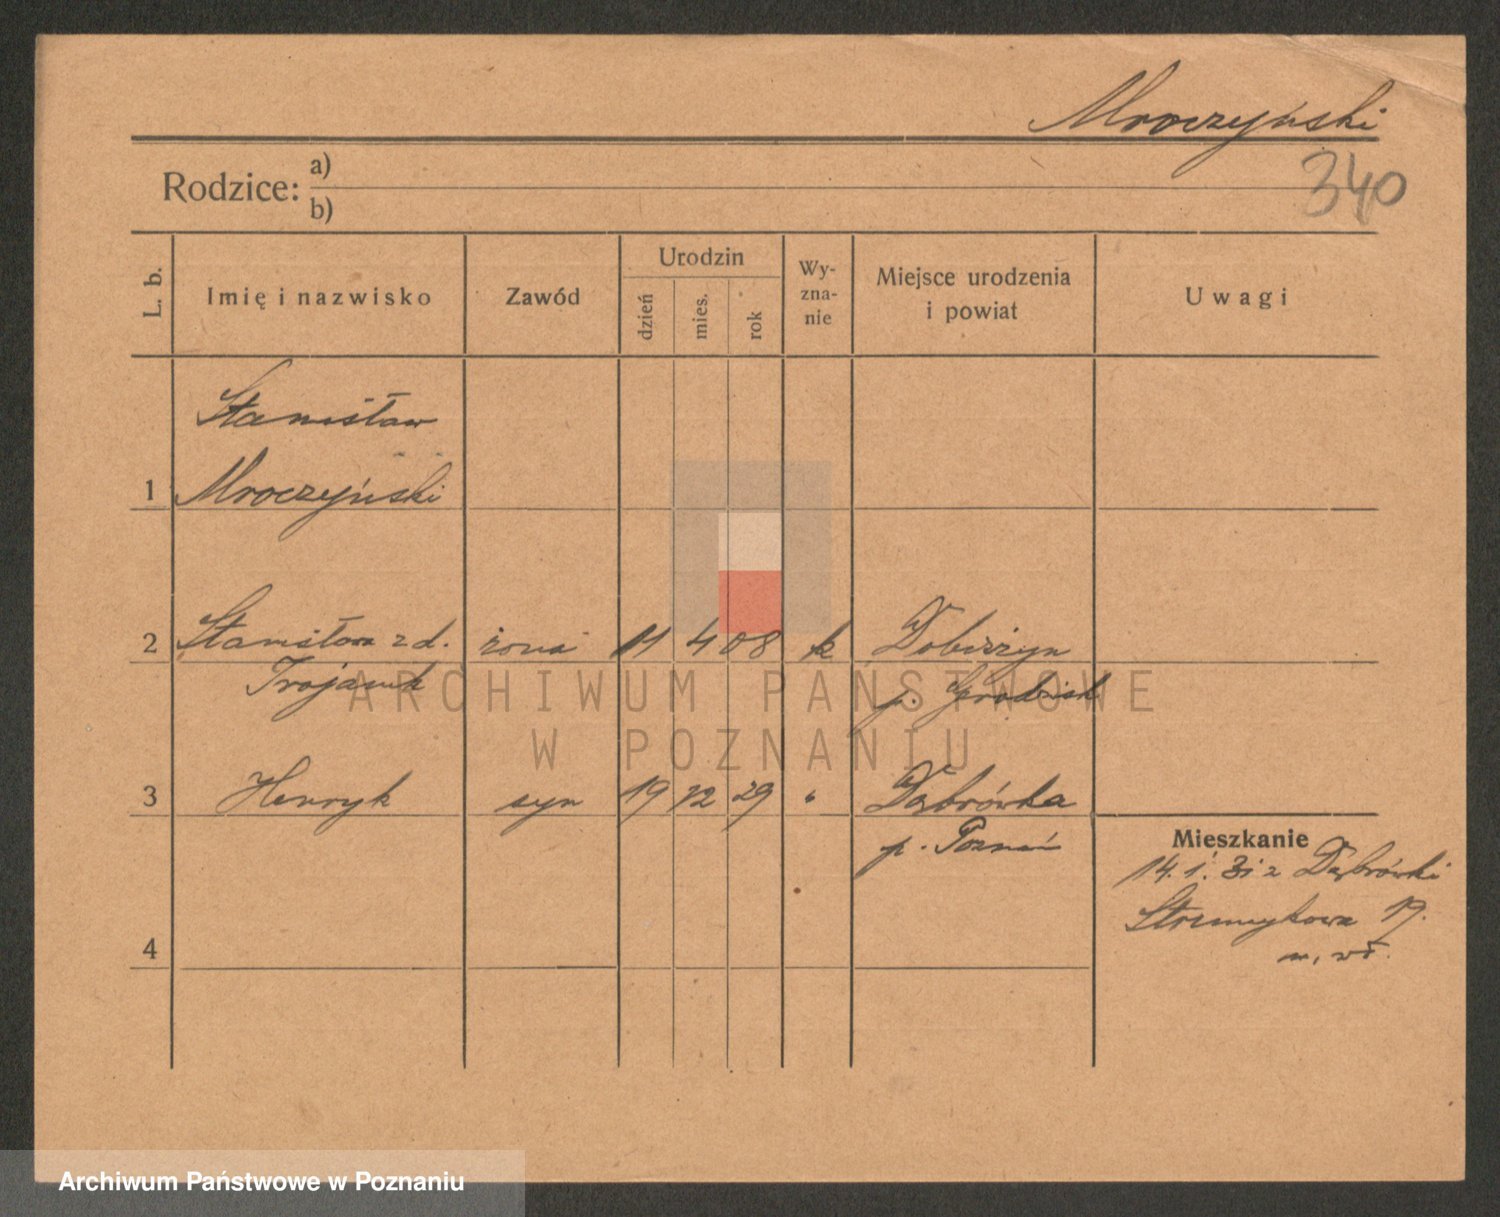 Mroczyński
340
Rodzice: a)
b)
L. b.
Imię i nazwisko
Zawód
Urodzin
dzień
mies.
rok
Wy-
zna-
nie
Miejsce urodzenia
i powiat
Uwagi
Stanisław
1 Mroczyński
2 Stanisława z d. żona 11 4 08 k
Trojanek p. Grodzisk
3 Henryk syn 19 12 29 " Dąbrówka
p. Poznań
Mieszkanie
14. 1. 31 z Dąbrówki
Strumykowa 19.
4
ARCHIWUM PAŃSTWOWE
W POZNANIU
Archiwum Państwowe w Poznaniu